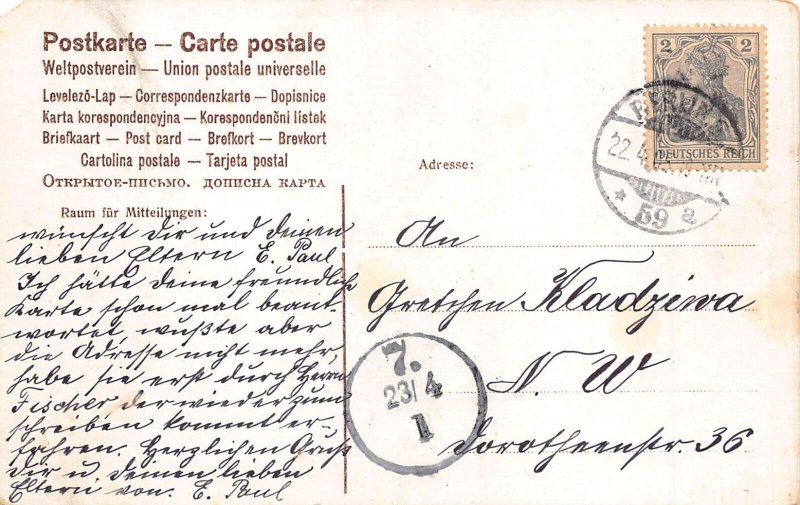 Postkarte — Carte postale
Weltpostverein — Union postale universelle
Levelező-Lap — Correspondenzkarte — Dopisnice
Karta korespondencyjna — Korespondenční lístek
Briefkaart — Post card — Brefkort — Brevkort
Cartolina postale — Tarjeta postal
Открытое-письмо. дописна карта
Raum für Mitteilungen:
wünscht Dir und deinen
lieben Eltern E. Paul
Ich hätte deine freundliche
Karte schon mal beant-
wortet wußte aber
die Adresse nicht mehr,
habe sie erst durch Herrn
Fischer, der wieder zum
schreiben kommt er-
fahren. Herzlichen Gruß
dir u. deinen lieben
Eltern von. E. Paul
Adresse:
An
Gretchen Kladziwa
N. W
Dorotheenstr. 36
2 2
DEUTSCHES REICH
BERLIN
22.4
* 59 a
7.
23/4
1